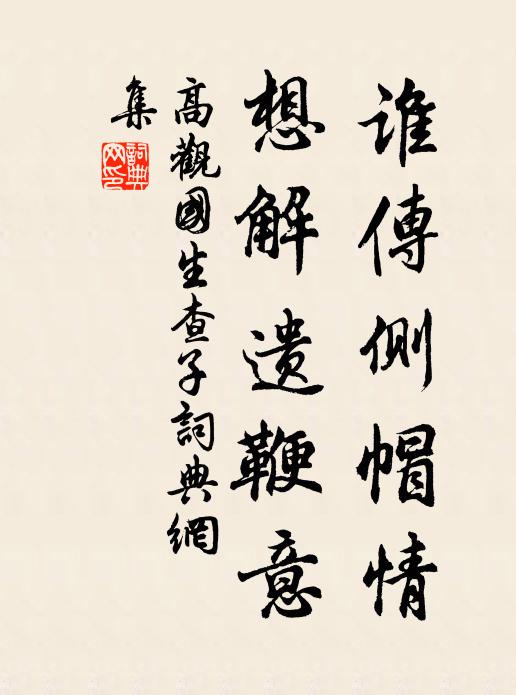 誰傳側帽情
想解遺鞭意
高觀國生查子詞典網
集
詞典
網印